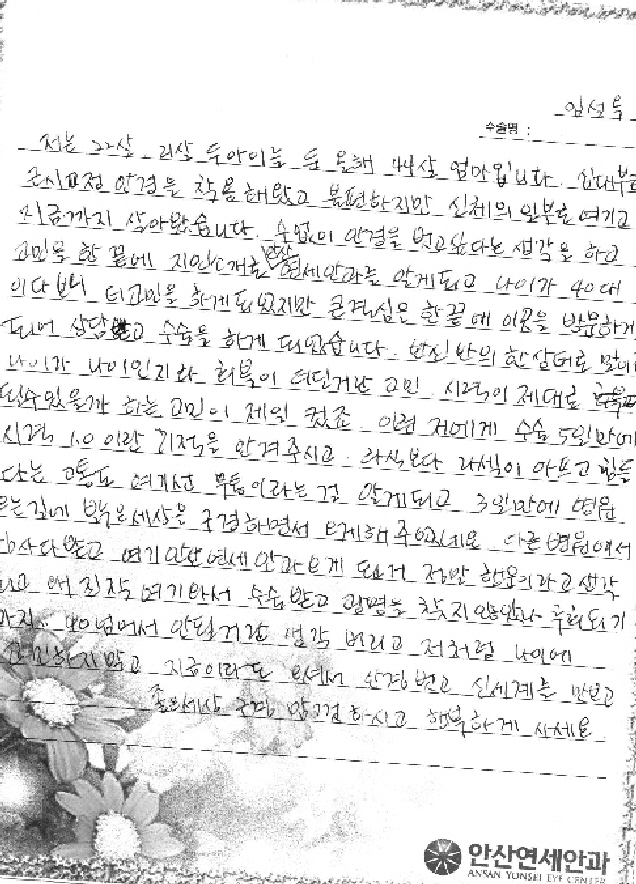 수술명 :
저는 22살, 21살 두아이를 둔 올해 44살 엄마입니다.
근시교정 안경을 착용해왔고 불편하지만 신체의 일부로 여기고
지금까지 살아왔습니다. 수없이 안경을 벗고싶다는 생각을 하고
고민을 한 끝에 지인소개로 안산연세안과를 알게되고 나이가 40대
이다보니 더고민을 하게되었지만 큰결심은 한끝에 이곳을 방문하게
되어 상담받고 수술을 하게 되었습니다. 반신반의한 상태로
나이가 나이인지라 회복이 더딘거란 고민 시력이 제대로
될수있을까 하는 고민이 제일 컸죠. 이런 저에게 수술 5일만에
시력 1.0 이란 기적을 안겨주시고. 라식보다 라섹이 아프고 힘들
다는 고통도 여기서 무통이라는걸 알게되고 3일만에 병원
오는길에 밝은세상을 구경하면서 오게해주었네요. 다른병원에서
여기 안산연세안과오게 된게 정말 행운이라고 생각
하고 왜 진작 여기와서 수술받고 광명을 찾지 않았나 후회되기
까지.. 40넘어서 안된거란 생각 버리고 저처럼 나이에
고민하지말고 지금이라도 오셔서 안경벗고 신세계를 만나고
좋은세상 구경 많이 하시고 행복하게 사세요
안산연세안과
ANSAN YONSEI EYE CENTER